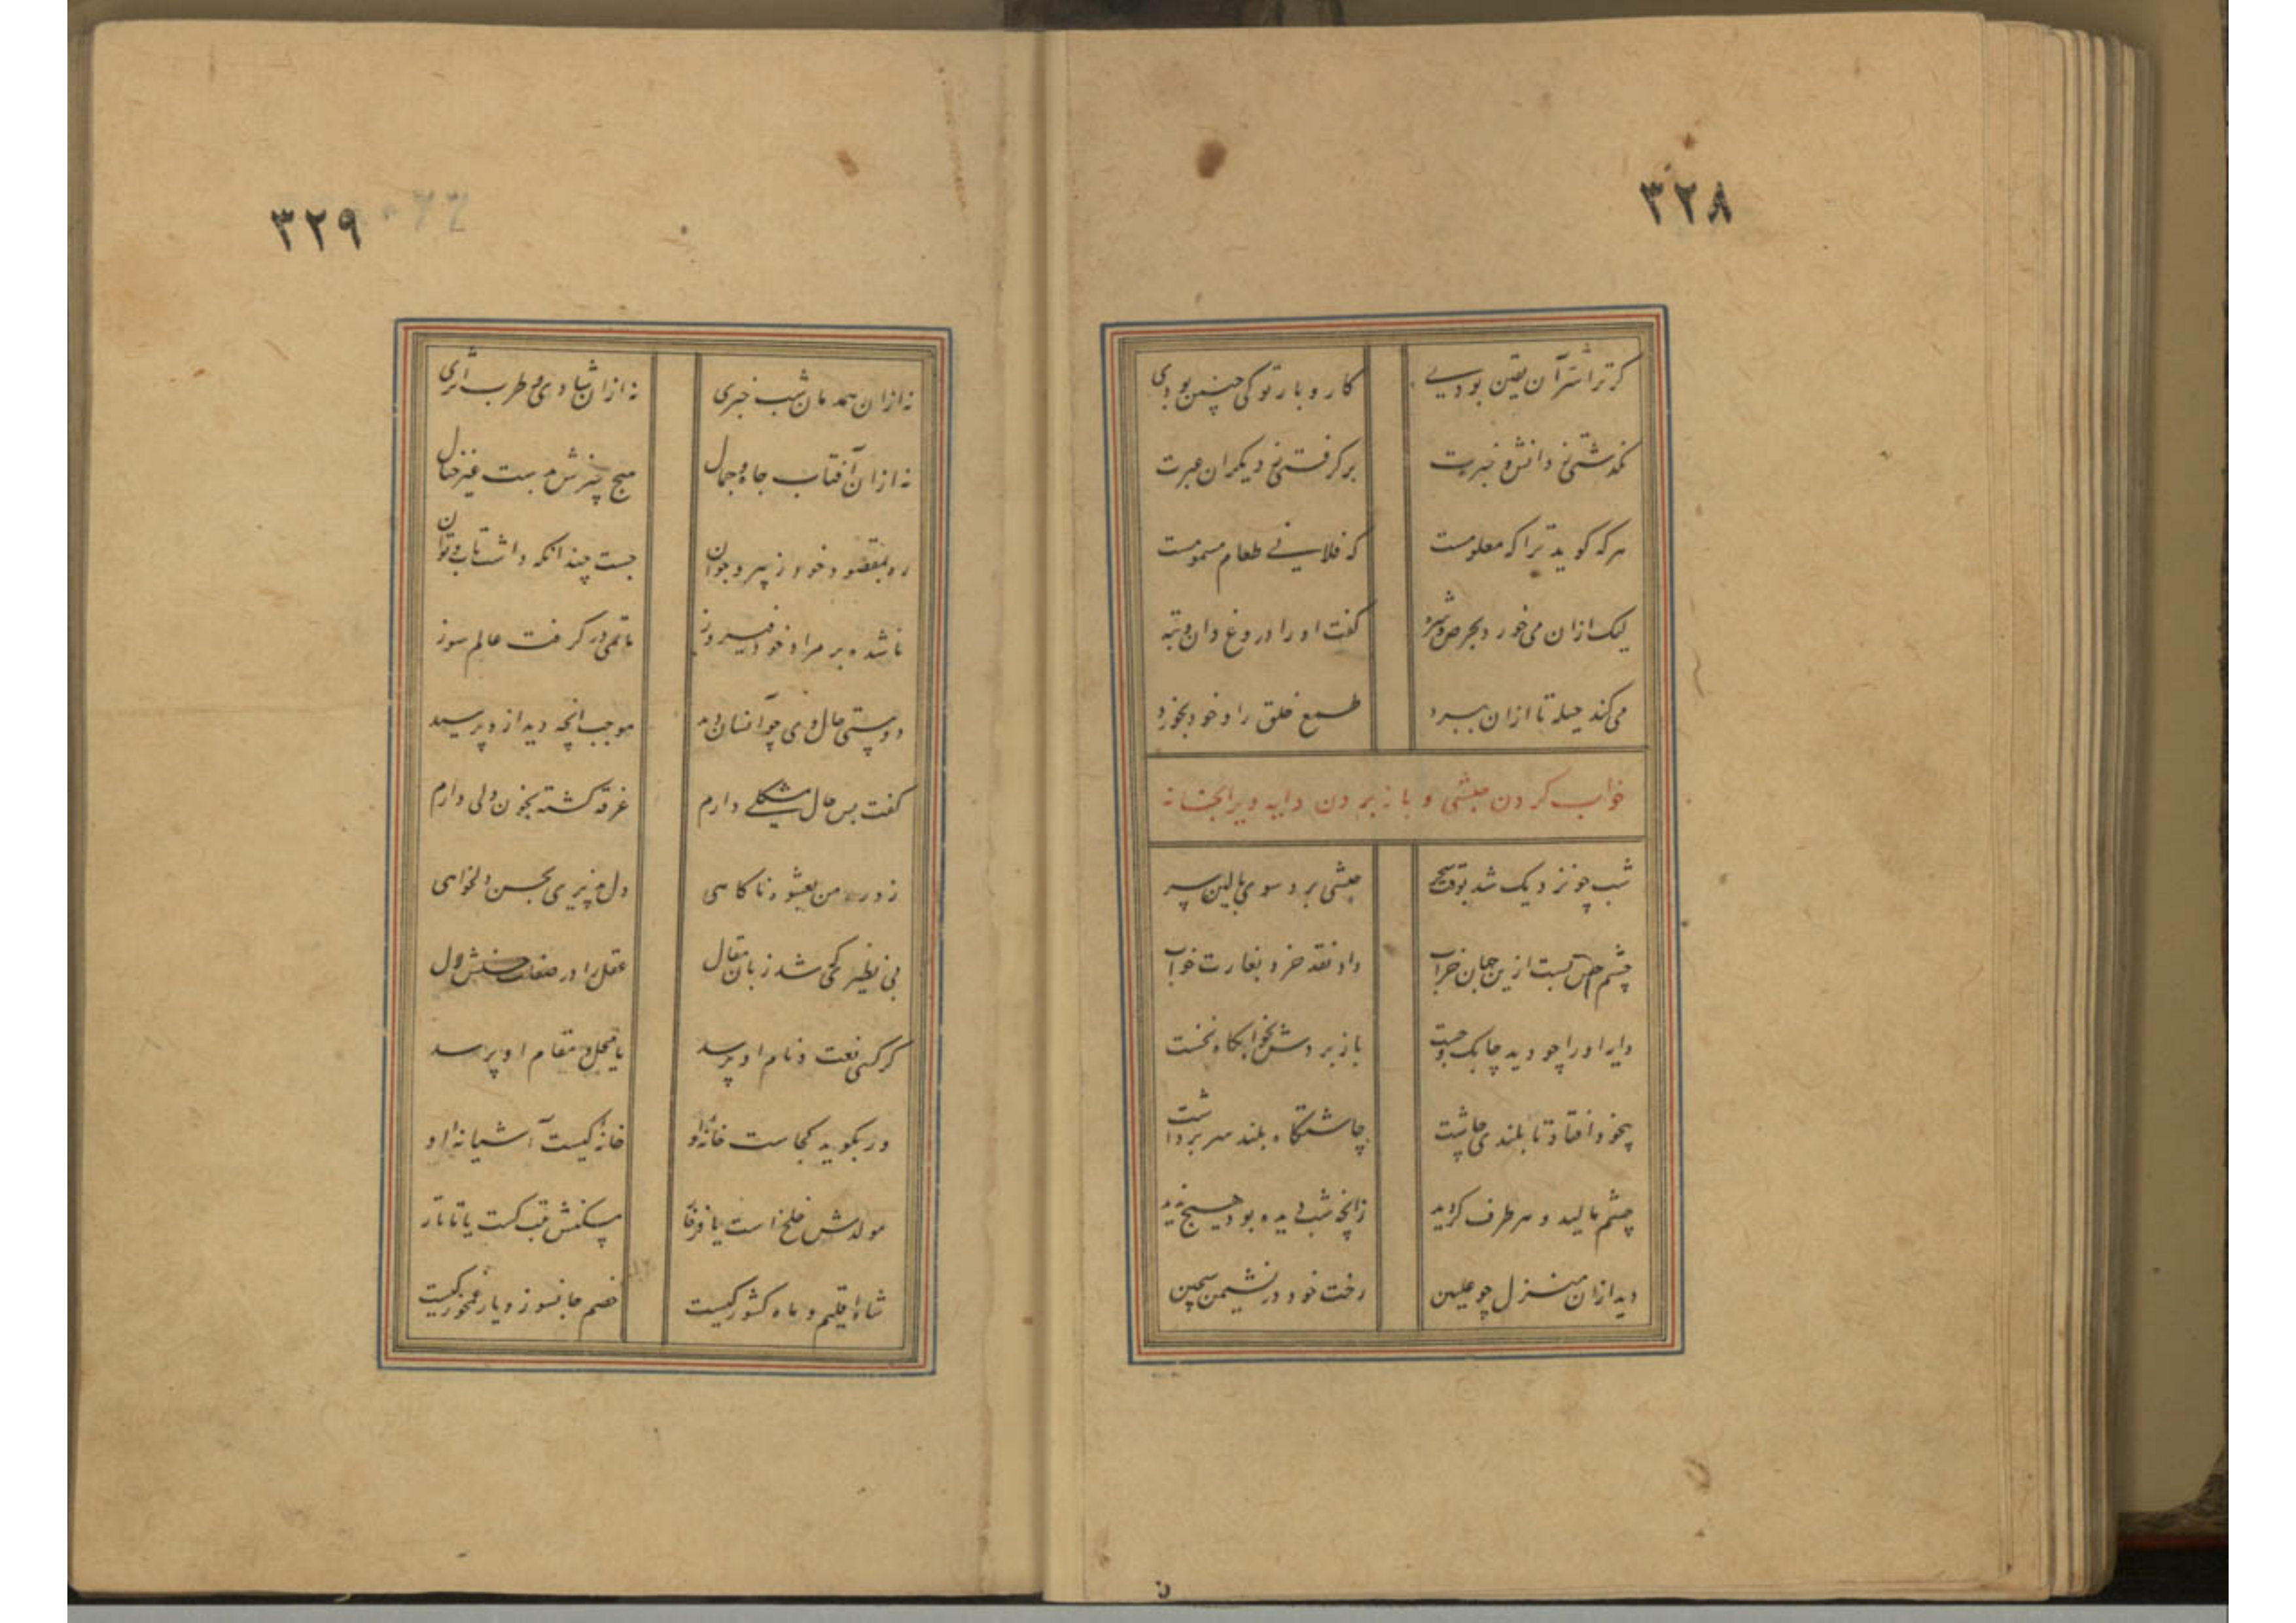 ۳۲۸
کر ترا شر آن یقین بودی کار و بار تو کی چنین بودی
نکذشتی دانش و خبرت برکرفتی دیکران عبرت
هر که کوید ترا که معلومست که فلانی طعام مسمومست
لیک ازان می خورد بحرص و شره کفت او را دروغ دان و تبه
می کند حیله تا ازان ببرد طمع خلق را و خود بخورد
خواب کردن حبشی و باز بردن دایه ویرا بخانه
شب چو نزدیک شد بوقت سحر حبشی برد سوی بالین سر
چشم حس بست ازین جهان خراب داد نقد خرد بغارت خواب
دایه او را چو دید چابک و چست باز بردش بخوابکاه نخست
بیخود افتاد تا بلندی چاشت چاشتکاه بلند سر برداشت
چشم مالید و هر طرف کردید زانچه شب دیده بود هیچ ندید
دید ازان منزل چو علیین رخت خود در نشیمن سجین
۳۲۹
نه ازان همدمان شب خبری نه ازان شادی و طرب اثری
نه ازان آفتاب جاه و جمال هیچ چیزش بدست غیر خیال
ره بمقصود خود ز پیر و جوان جست چندانکه داشت تاب و توان
ناشده بر مراد خود فیروز ماتمی در کرفت عالم سوز
دوستی حال وی چو آنسان دید موجب آنچه دید ازو پرسید
کفت بس حال مشکلی دارم غرقه کشته بخون دلی دارم
زد ره من بعشوه ناکاهی دل پذیری بحسن دلخواهی
بی نظیری کی شد زبان مقال عقل را در صفات حسنش لال
کر کسی نعت و نام او پرسد یا محل و مقام او پرسد
ور بکوید کجاست خانه او خانه کیست آشیانه او
مولدش خلخ است یا فرخار مسکنش تبت است یا تاتار
شاه اقلیم و ماه کشور کیست خصم جانسوز و یار غمخور کیست